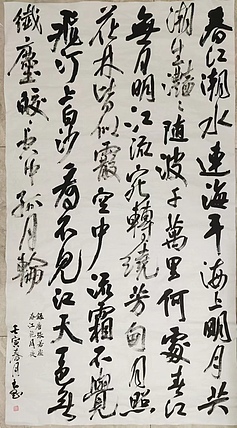 春江潮水連海平海上明月共
潮生灧々隨波千萬里何處春江
無月明江流宛轉繞芳甸月照
花林皆似霰空中流霜不覺
飛汀上白沙看不見江天一色無
纖塵皎々空中孤月輪
錄唐張若虛
春江花月夜
壬寅春月